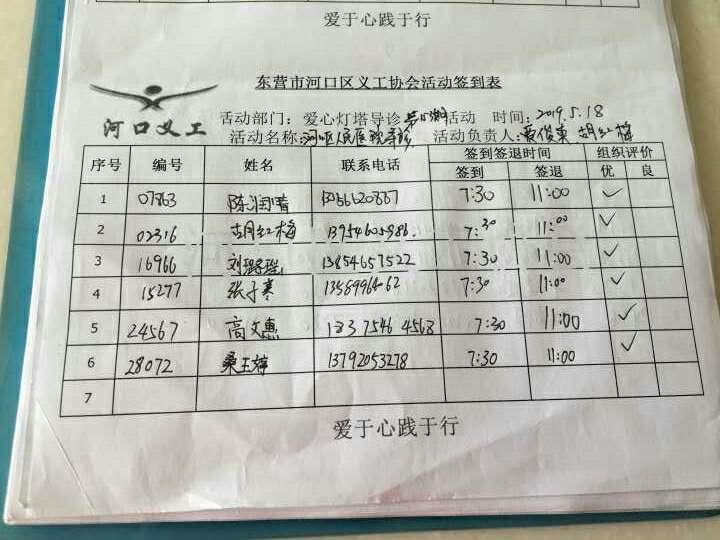 爱于心践于行
东营市河口区义工协会活动签到表
河口义工
活动部门：爱心灯塔导诊 活动 时间：2019.5.18
活动名称：河口区人民医院导诊 活动负责人：黄俊东 胡红梅
序号 编号 姓名 联系电话 签到签退时间 组织评价
签到 签退 优 良
1 07863 陈润晴 7:30 11:00 ✓
2 02316 胡红梅 13954605986 7:30 11:00 ✓
3 16966 刘璐瑶 13854657522 7:30 11:00 ✓
4 15277 张子寒 13589964062 7:30 11:00 ✓
5 24567 高文惠 183 7546 4568 7:30 11:00 ✓
6 28072 桑玉婷 13792053278 7:30 11:00 ✓
7
爱于心践于行